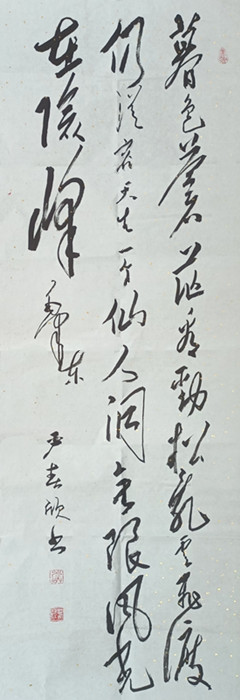 暮色蒼茫看勁松乱云飛渡
仍從容天生一个仙人洞无限风光
在險峰 毛泽东
尹春欣书